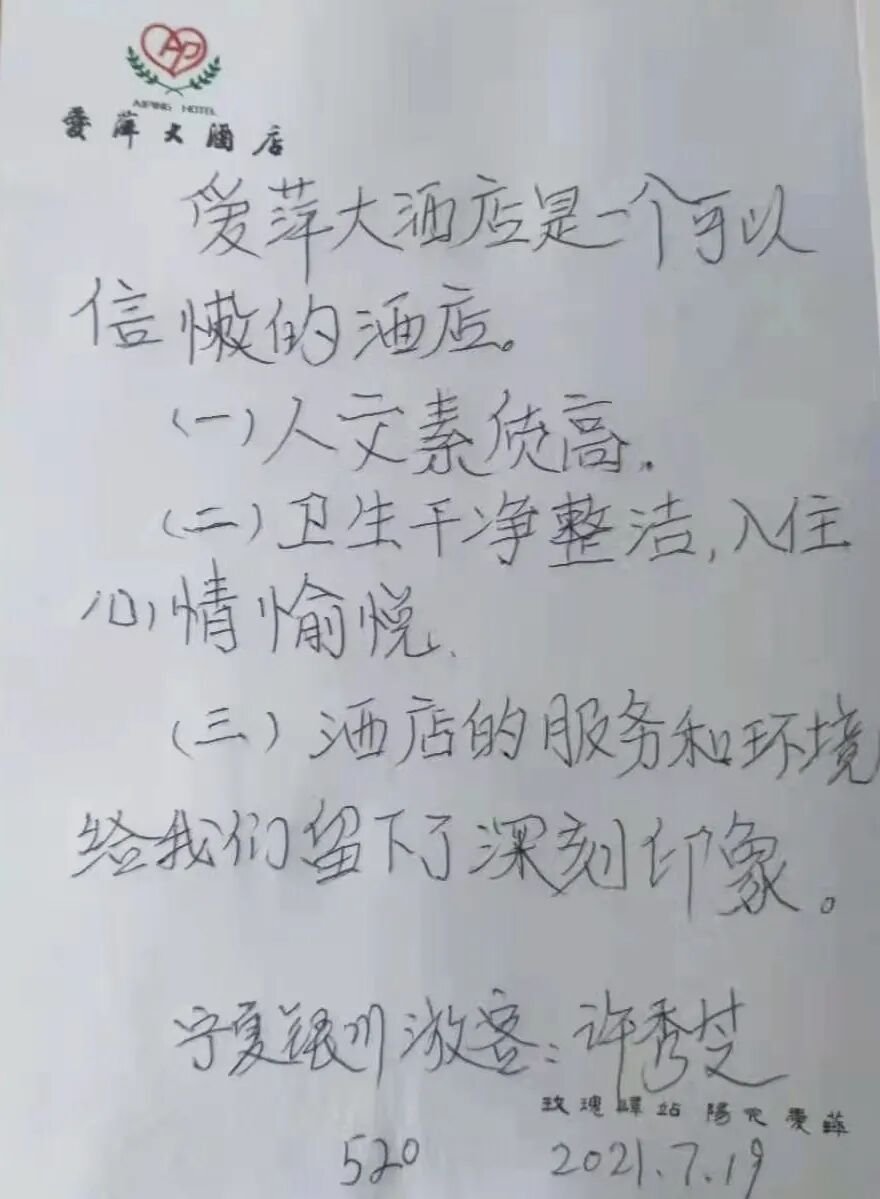 AP
AIPING HOTEL
愛萍大酒店
爱萍大洒店是一个可以
信懒的洒店。
(一)人文素质高.
(二)卫生干净整洁,入住
心情愉悦.
(三)洒店的服务和环境
给我们留下了深刻印象。
宁夏银川游客:许秀芝
玫瑰驛站 陽光愛萍
520 2021.7.19